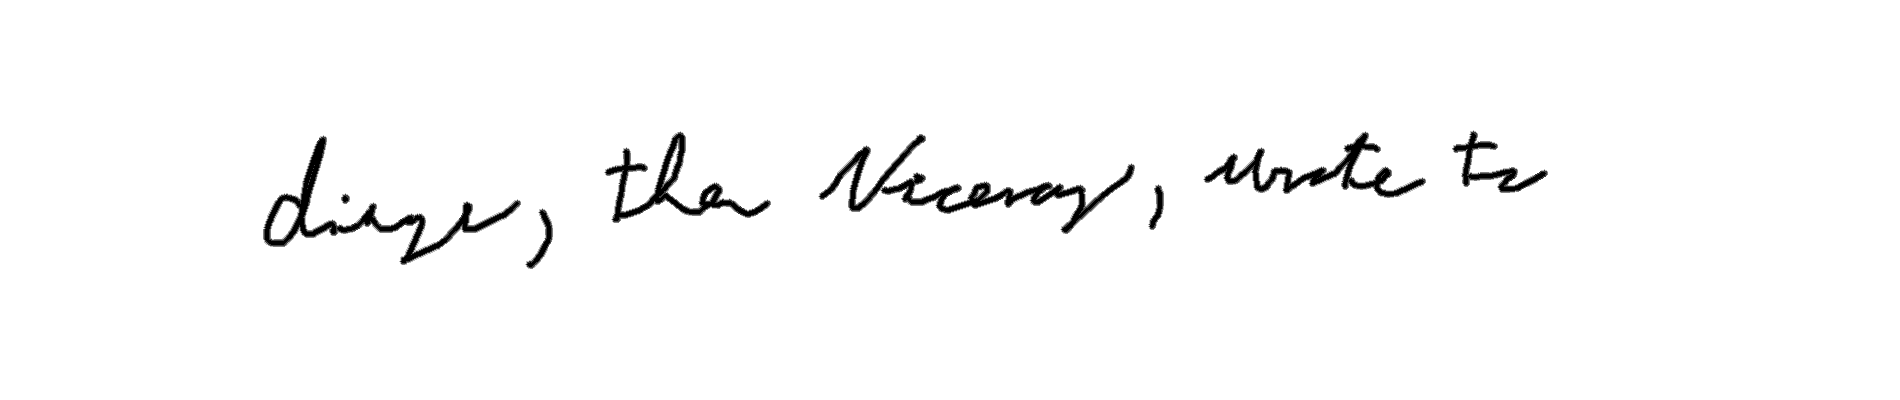 dinge, then Viceroy, wrote to